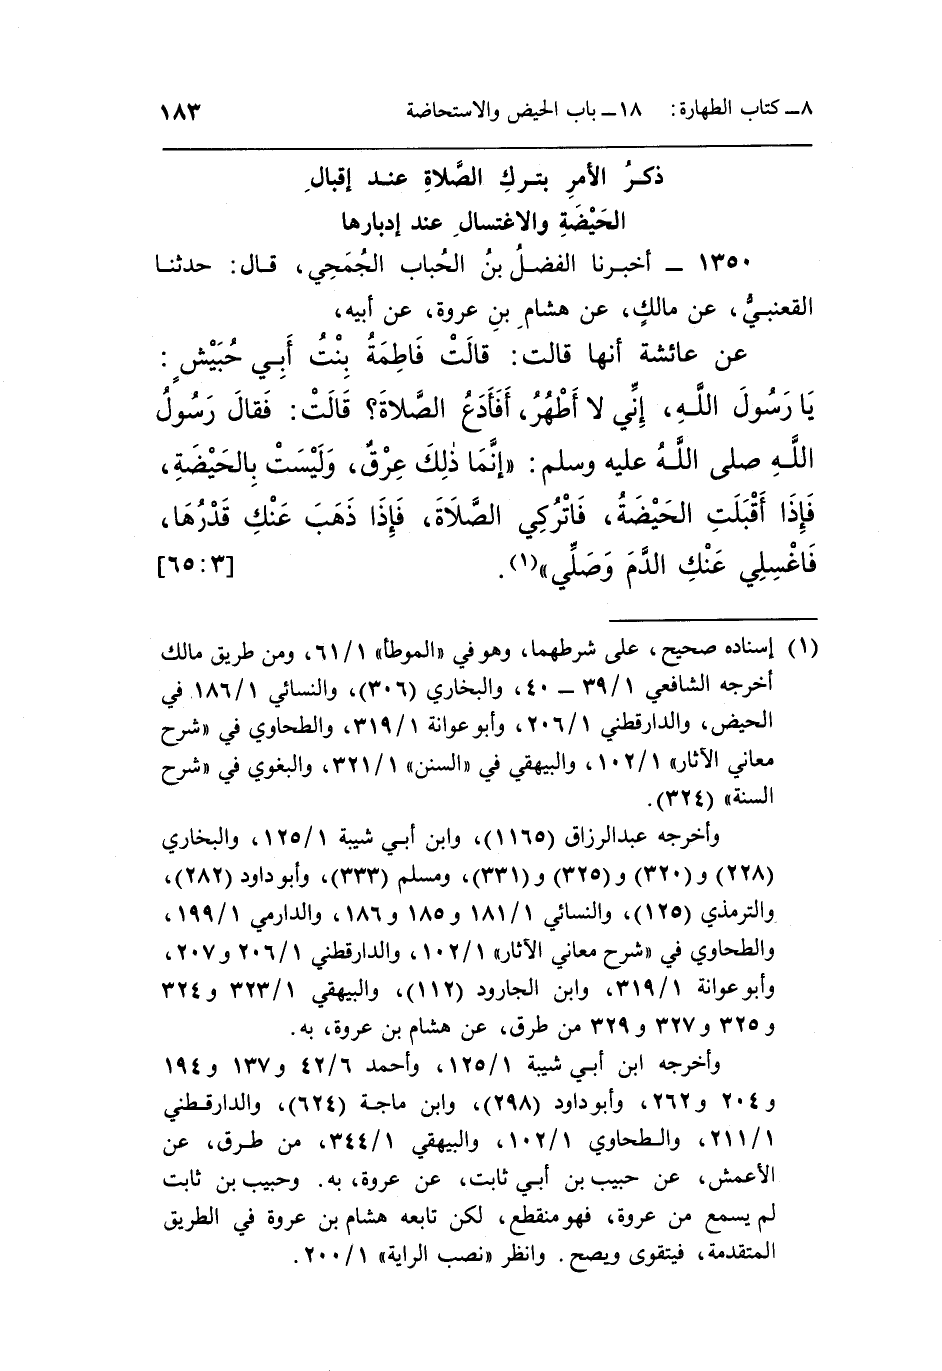 ٨ـ كتاب الطهارة: ١٨ـ باب الحيض والاستحاضة ١٨٣
ذكـرُ الأمرِ بتـركِ الصَّلاةِ عنـد إقبالِ
الحَيْضَةِ والاغتسالِ عند إدبارها
١٣٥٠ ـ أخبـرنا الفضـلُ بنُ الحُباب الجُمَحِي، قـال: حدثنـا
القعنبـيُّ، عن مالكٍ، عن هشامِ بنِ عروة، عن أبيه،
عن عائشة أنها قالت: قالَتْ فَاطِمَةُ بِنْتُ أَبِـي حُبَيْشٍ:
يَا رَسُولَ اللَّـهِ، إِنِّي لا أَطْهُرُ، أَفَأَدَعُ الصَّلاةَ؟ قَالَتْ: فَقالَ رَسُولُ
اللَّـهِ صلى اللَّـهُ عليه وسلم: «إِنَّمَا ذٰلِكَ عِرْقٌ، وَلَيْسَتْ بِالحَيْضَةِ،
فَإِذَا أَقْبَلَتِ الحَيْضَةُ، فَاتْرُكِي الصَّلَاةَ، فَإِذَا ذَهَبَ عَنْكِ قَدْرُهَا،
فَاغْسِلِي عَنْكِ الدَّمَ وَصَلِّي»(١). [٣: ٦٥]
(١) إسناده صحيح، على شرطهما، وهو في «الموطأ» ٦١/١، ومن طريق مالك
أخرجه الشافعي ٣٩/١ ـ ٤٠، والبخاري (٣٠٦)، والنسائي ١٨٦/١ في
الحيض، والدارقطني ٢٠٦/١، وأبو عوانة ٣١٩/١، والطحاوي في «شرح
معاني الآثار» ١٠٢/١، والبيهقي في «السنن» ٣٢١/١، والبغوي في «شرح
السنة» (٣٢٤).
وأخرجه عبدالرزاق (١١٦٥)، وابن أبـي شيبة ١٢٥/١، والبخاري
(٢٢٨) و(٣٢٠) و(٣٢٥) و(٣٣١)، ومسلم (٣٣٣)، وأبو داود (٢٨٢)،
والترمذي (١٢٥)، والنسائي ١٨١/١ و١٨٥ و١٨٦، والدارمي ١٩٩/١،
والطحاوي في «شرح معاني الآثار» ١٠٢/١، والدارقطني ٢٠٦/١ و٢٠٧،
وأبو عوانة ٣١٩/١، وابن الجارود (١١٢)، والبيهقي ٣٢٣/١ و٣٢٤
و٣٢٥ و٣٢٧ و٣٢٩ من طرق، عن هشام بن عروة، به.
وأخرجه ابن أبـي شيبة ١٢٥/١، وأحمد ٤٢/٦ و١٣٧ و١٩٤
و٢٠٤ و٢٦٢، وأبو داود (٢٩٨)، وابن ماجـة (٦٢٤)، والدارقـطني
٢١١/١، والـطحاوي ١٠٢/١، والبيهقي ٣٤٤/١، من طـرق، عن
الأعمش، عن حبيب بن أبـي ثابت، عن عروة، به. وحبيب بن ثابت
لم يسمع من عروة، فهو منقطع، لكن تابعه هشام بن عروة في الطريق
المتقدمة، فيتقوى ويصح. وانظر «نصب الراية» ٢٠٠/١.